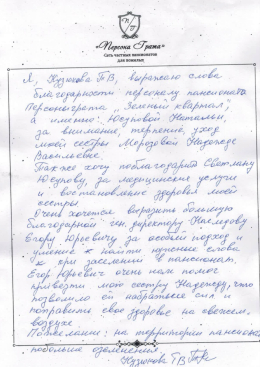 П/Г
«Персона Грата»
Сеть частных пансионатов
для пожилых
Я, Кузикова Т В, выражаю слова
благодарности персоналу пансионата
Персонаграта „Зеленый квартал",
а именно: Юсуповой Натальи,
за внимание, терпение, уход
моей сестры Морозовой Надежде
Васильевне.
Также хочу поблагодарить Светлану
Юсупову, за медицинские услуги
и востановление здоровья моей
сестры
Очень хочется выразить большую
благодарной ген. директору
Егору Юрьевичу за особый подход и
умение найти нужные слова
при заселении в пансионат.
Егор Юрьевич очень нам помог
привезти мою сестру Надежду, что
позволило ей набраться сил и
поправить свое здоровье на свежем
воздухе
Пожелание: на территории пансиона
побольше озеленения
Кузикова Т В